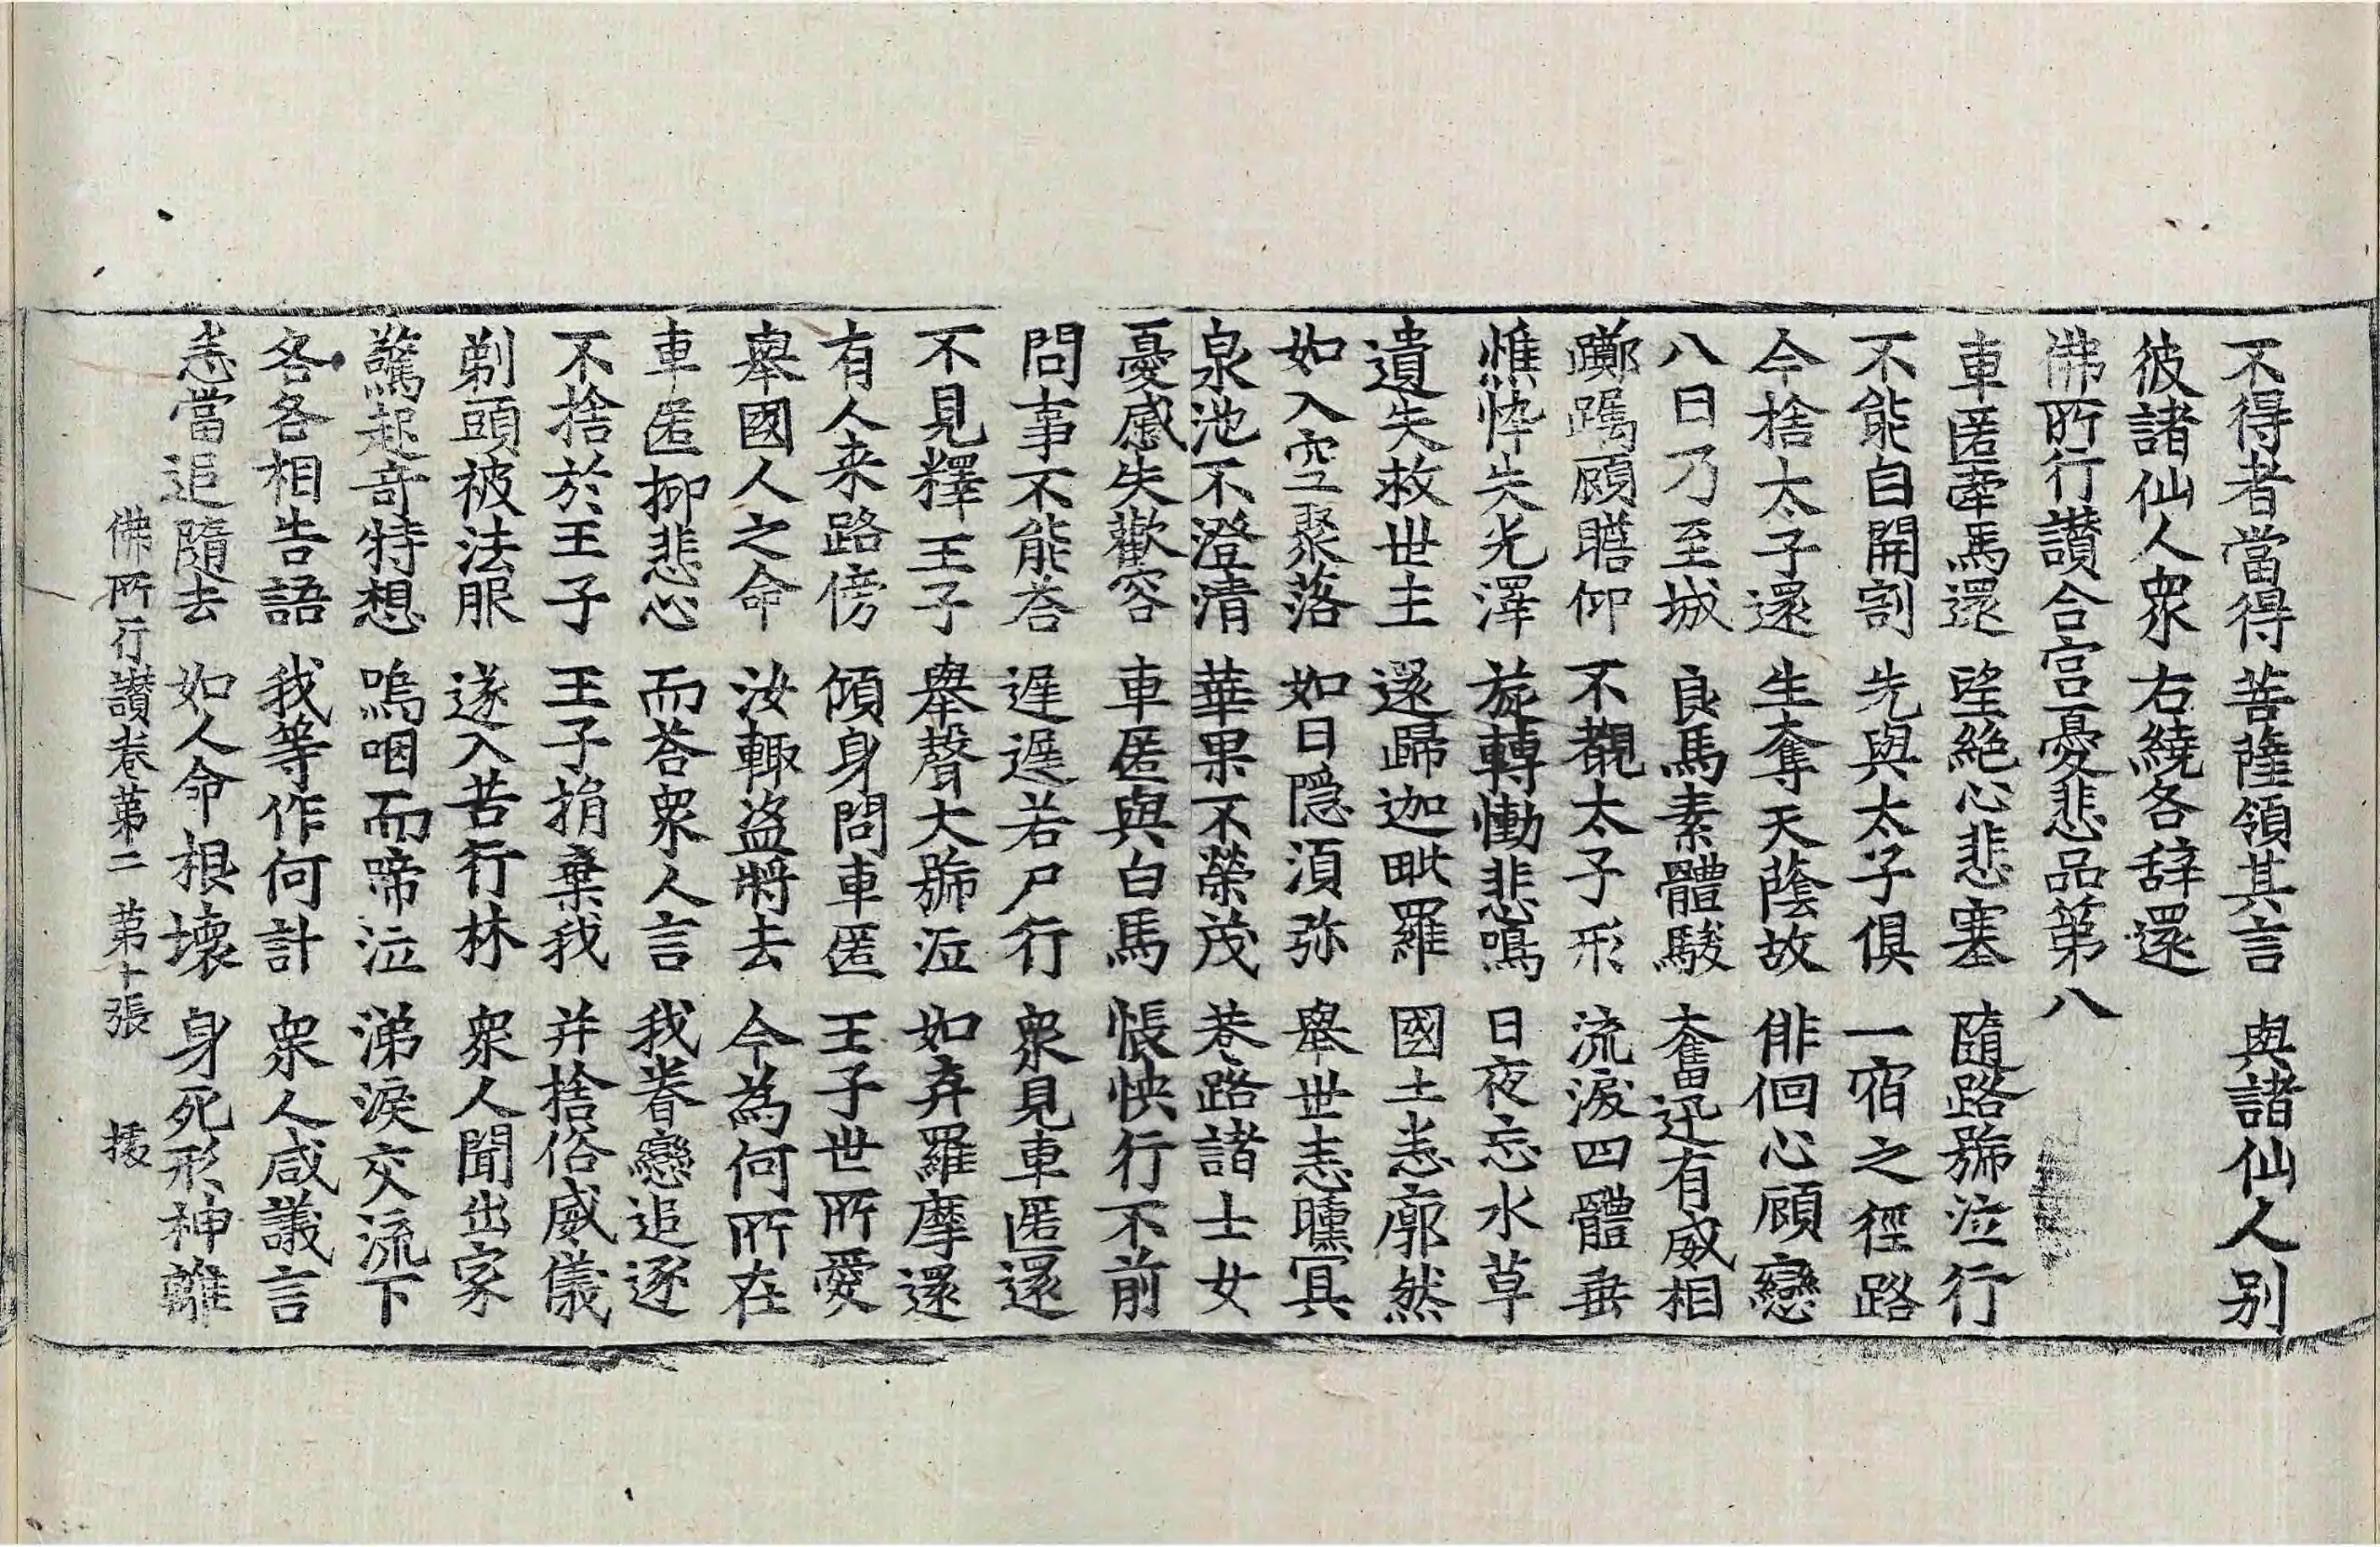 不得者當得　菩薩領其言　與諸仙人別
彼諸仙人衆　右繞各辞還
佛所行讃合宫憂悲品第八
車匿牽馬還　望絶心悲塞　隨路號泣行
不能自開割　先與太子俱　一宿之徑路
今捨太子還　生奪天蔭故　俳佪心顧戀
八日乃至城　良馬素體駿　奮迅有威相
躑躅顧瞻仰　不覩太子形　流淚四體垂
憔悴失光澤　旋轉慟悲鳴　日夜忘水草
遺失救世主　還歸迦毗羅　國土悉廓然
如入空聚落　如日隱須弥　舉世悉曛冥
泉池不澄清　華果不榮茂　巷路諸士女
憂慼失歡容　車匿與白馬　悵怏行不前
問事不能荅　遲遲若尸行　衆見車匿還
不見釋王子　舉聲大號泣　如弃羅摩還
有人来路傍　傾身問車匿　王子世所愛
舉國人之命　汝輙盜將去　今為何所在
車匿抑悲心　而荅衆人言　我眷戀追逐
不捨於王子　王子捐棄我　并捨俗威儀
剃頭被法服　遂入苦行林　衆人聞出家
驚起奇特想　嗚咽而啼泣　涕淚交流下
各各相告語　我等作何計　衆人咸議言
悉當追隨去　如人命根壞　身死形神離
佛所行讃卷第二　第十張